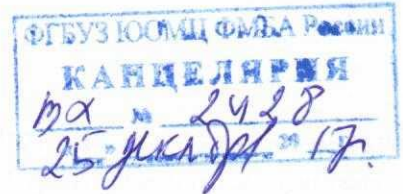 ФГБУЗ ЮОМЦ ФМБА России
КАНЦЕЛЯРИЯ
вх № 2428
"25" декабря 17г.